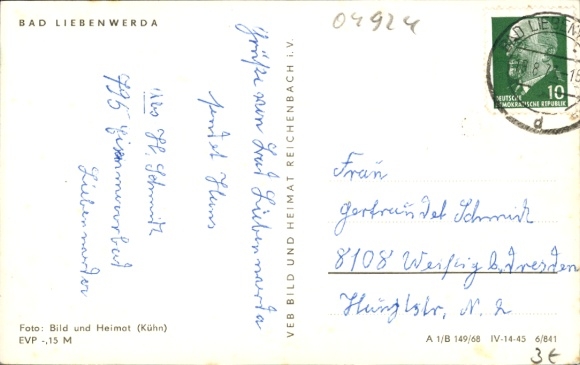 BAD LIEBENWERDA
04924
BAD LIEBENW
DEUTSCHE
DEMOKRATISCHE REPUBLIK
10
d
Grüße von Bad Liebenwerda
sendet Hans
H. Schmidt
795 Eisenmoorbad
Liebenwerda
VEB BILD UND HEIMAT REICHENBACH i. V.
Frau
Gertraudet Schmidt
8108 Weißig b. Dresden
Foto: Bild und Heimat (Kühn)
EVP -,15 M
A 1/B 149/68 IV-14-45 6/841
3€